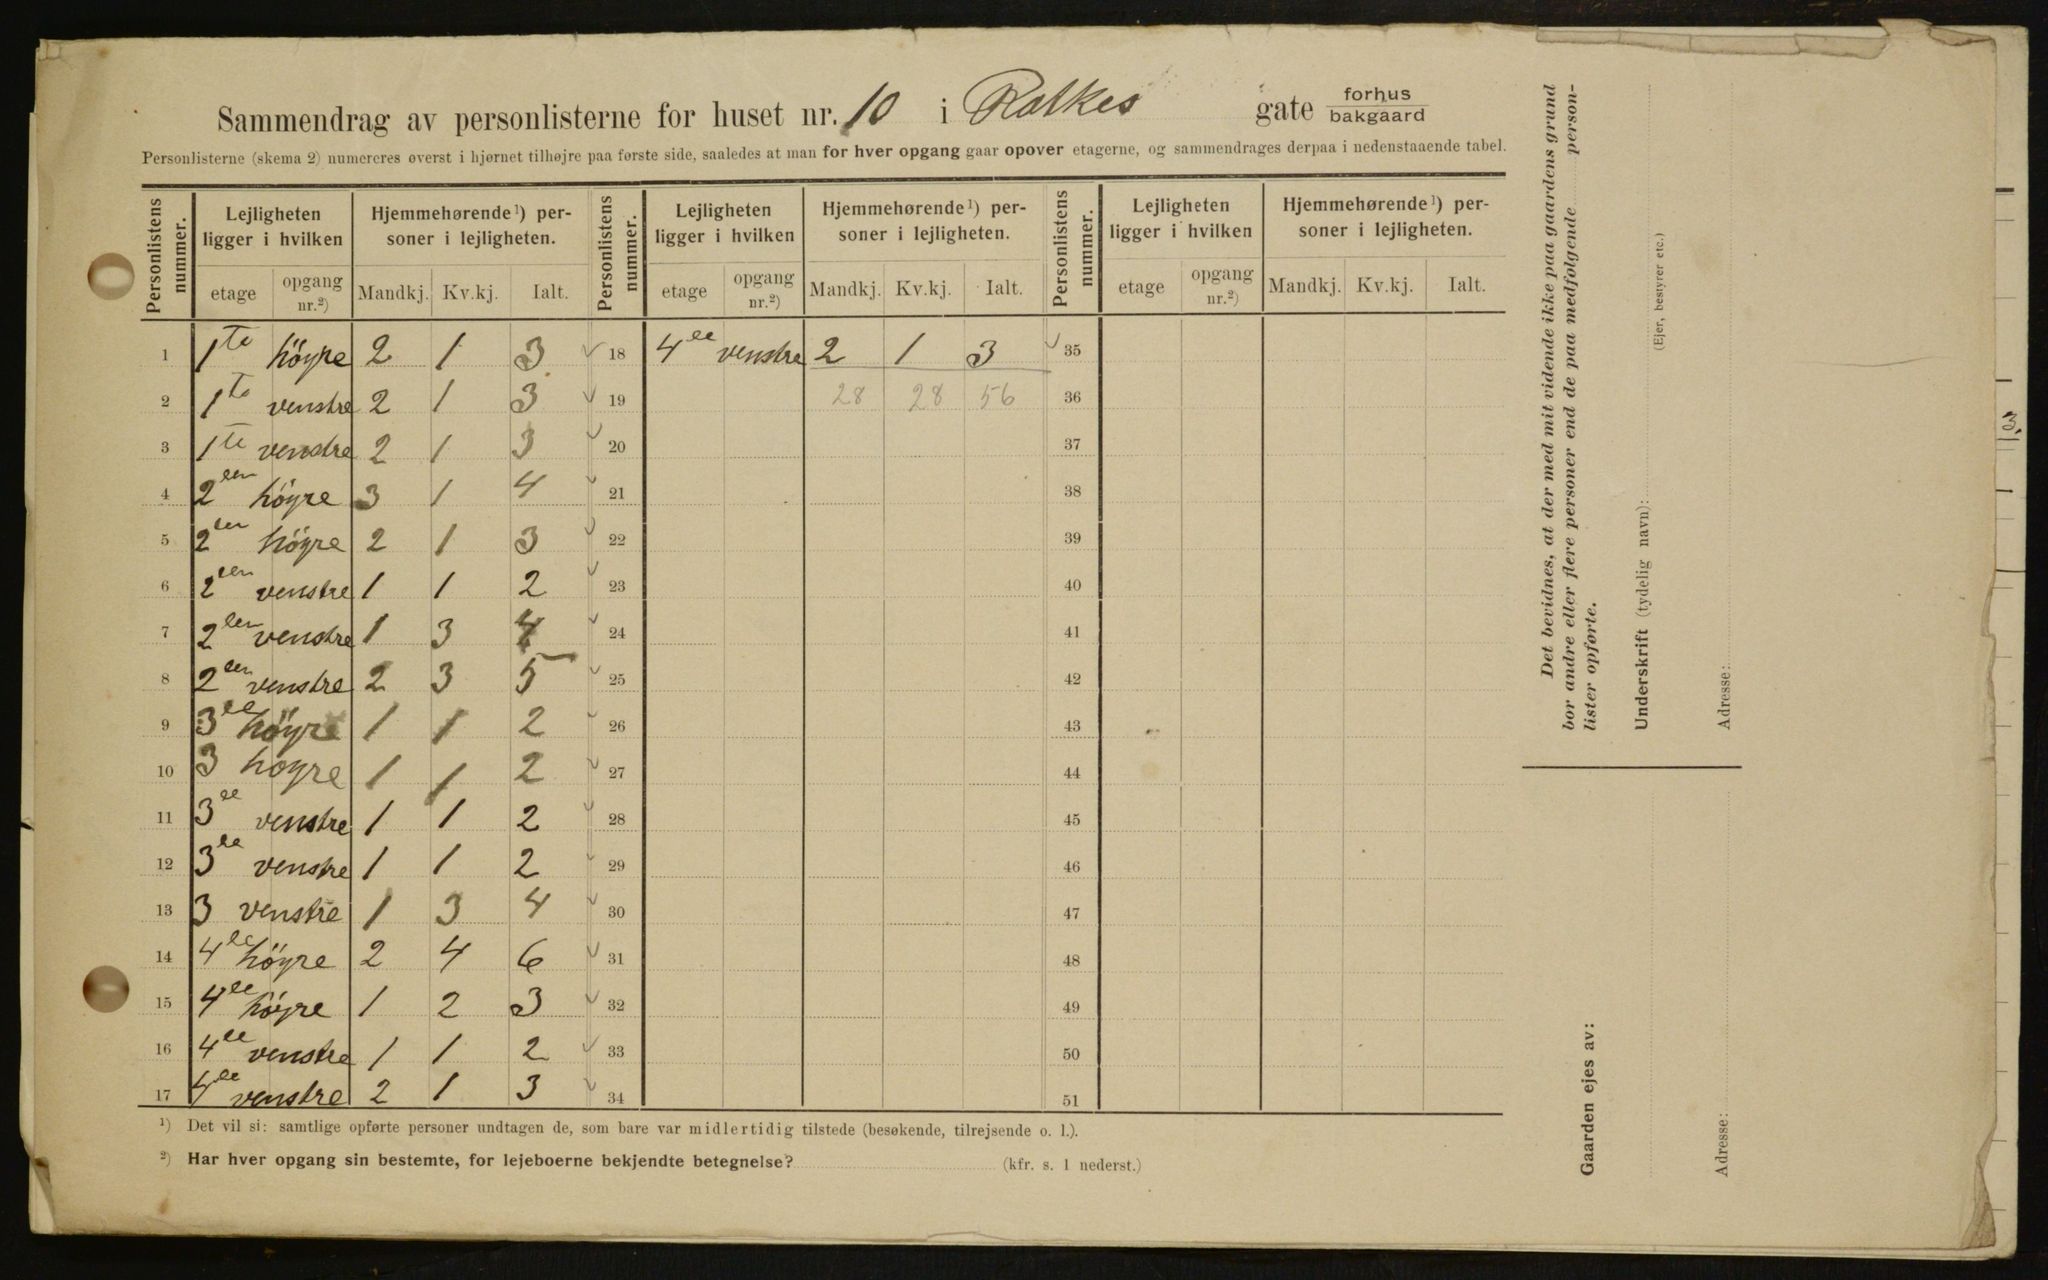 Sammendrag av personlisterne for huset nr. 10 i Ratkes gate forhus bakgaard
Personlisterne (skema 2) numereres øverst i hjørnet tilhøjre paa første side, saaledes at man for hver opgang gaar opover etagerne, og sammendrages derpaa i nedenstaaende tabel.
Personlistens nummer. Lejligheten ligger i hvilken Hjemmehørende¹) personer i lejligheten. Personlistens nummer. Lejligheten ligger i hvilken Hjemmehørende¹) personer i lejligheten. Personlistens nummer. Lejligheten ligger i hvilken Hjemmehørende¹) personer i lejligheten.
etage opgang nr.²) Mandkj. Kv.kj. Ialt. etage opgang nr.²) Mandkj. Kv.kj. Ialt. etage opgang nr.²) Mandkj. Kv.kj. Ialt.
1 1te höyre 2 1 3 18 4de venstre 2 1 3 35
2 1te venstre 2 1 3 19 28 28 56 36
3 1te venstre 2 1 3 20 37
4 2den höyre 3 1 4 21 38
5 2den höyre 2 1 3 22 39
6 2den venstre 1 1 2 23 40
7 2den venstre 1 3 4 24 41
8 2den venstre 2 3 5 25 42
9 3de höyre 1 1 2 26 43
10 3 høyre 1 1 2 27 44
11 3de venstre 1 1 2 28 45
12 3de venstre 1 1 2 29 46
13 3 venstre 1 3 4 30 47
14 4de höyre 2 4 6 31 48
15 4de höyre 1 2 3 32 49
16 4de venstre 1 1 2 33 50
17 4de venstre 2 1 3 34 51
¹) Det vil si: samtlige opførte personer undtagen de, som bare var midlertidig tilstede (besøkende, tilrejsende o. l.).
²) Har hver opgang sin bestemte, for lejeboerne bekjendte betegnelse? (kfr. s. 1 nederst.)
Det bevidnes, at der med mit vidende ikke paa gaardens grund
bor andre eller flere personer end de paa medfølgende person-
lister opførte.
Underskrift (tydelig navn):
(Ejer, bestyrer etc.)
Adresse:
Gaarden ejes av:
Adresse: